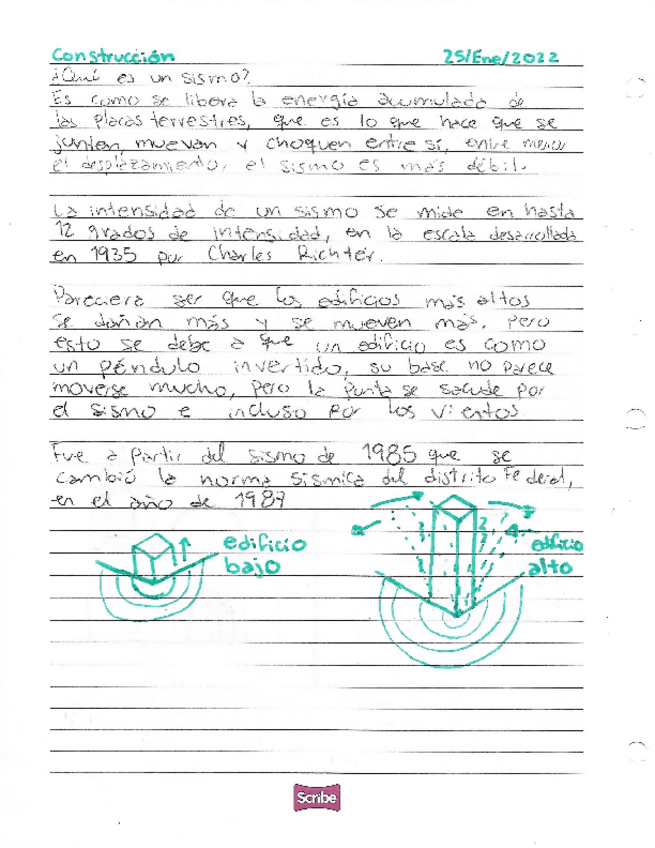 Construcción 25/Ene/2022
¿Qué es un sismo?
Es como se libera la energía acumulada de
las placas terrestres, que es lo que hace que se
junten, muevan y choquen entre sí, entre menor
el desplazamiento, el sismo es más débil.
La intensidad de un sismo se mide en hasta
12 grados de intensidad, en la escala desarrollada
en 1935 por Charles Richter.
Pareciera ser que los edificios más altos
se dañan más y se mueven más, pero
esto se debe a que un edificio es como
un péndulo invertido, su base no parece
moverse mucho, pero la punta se sacude por
el sismo e incluso por los vientos
Fue a partir del sismo de 1985 que se
cambió la norma sísmica del distrito Federal,
en el año de 1987
edificio
bajo
edificio
alto
Scribe